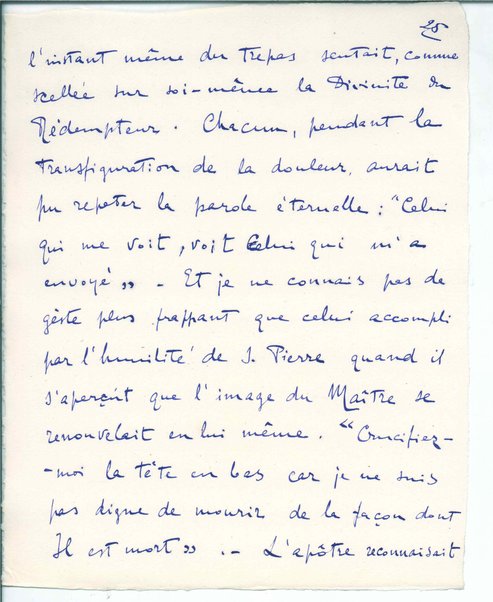 25
l'instant même du trepas sentait, comme
scellée sur soi-même la Divinité du
Rédempteur. Chacun, pendant la
transfiguration de la douleur, aurait
pu repeter la parole éternelle : "Celui
qui me voit, voit Celui qui m'a
envoyé" - Et je ne connais pas de
gèste plus frappant que celui accompli
par l'humilité de S. Pierre quand il
s'aperçoit que l'image du Maître se
renouvelait en lui même. "Crucifiez-
-moi la tête en bas car je ne suis
pas digne de mourir de la façon dont
Il est mort" .- L'apôtre reconnaisait